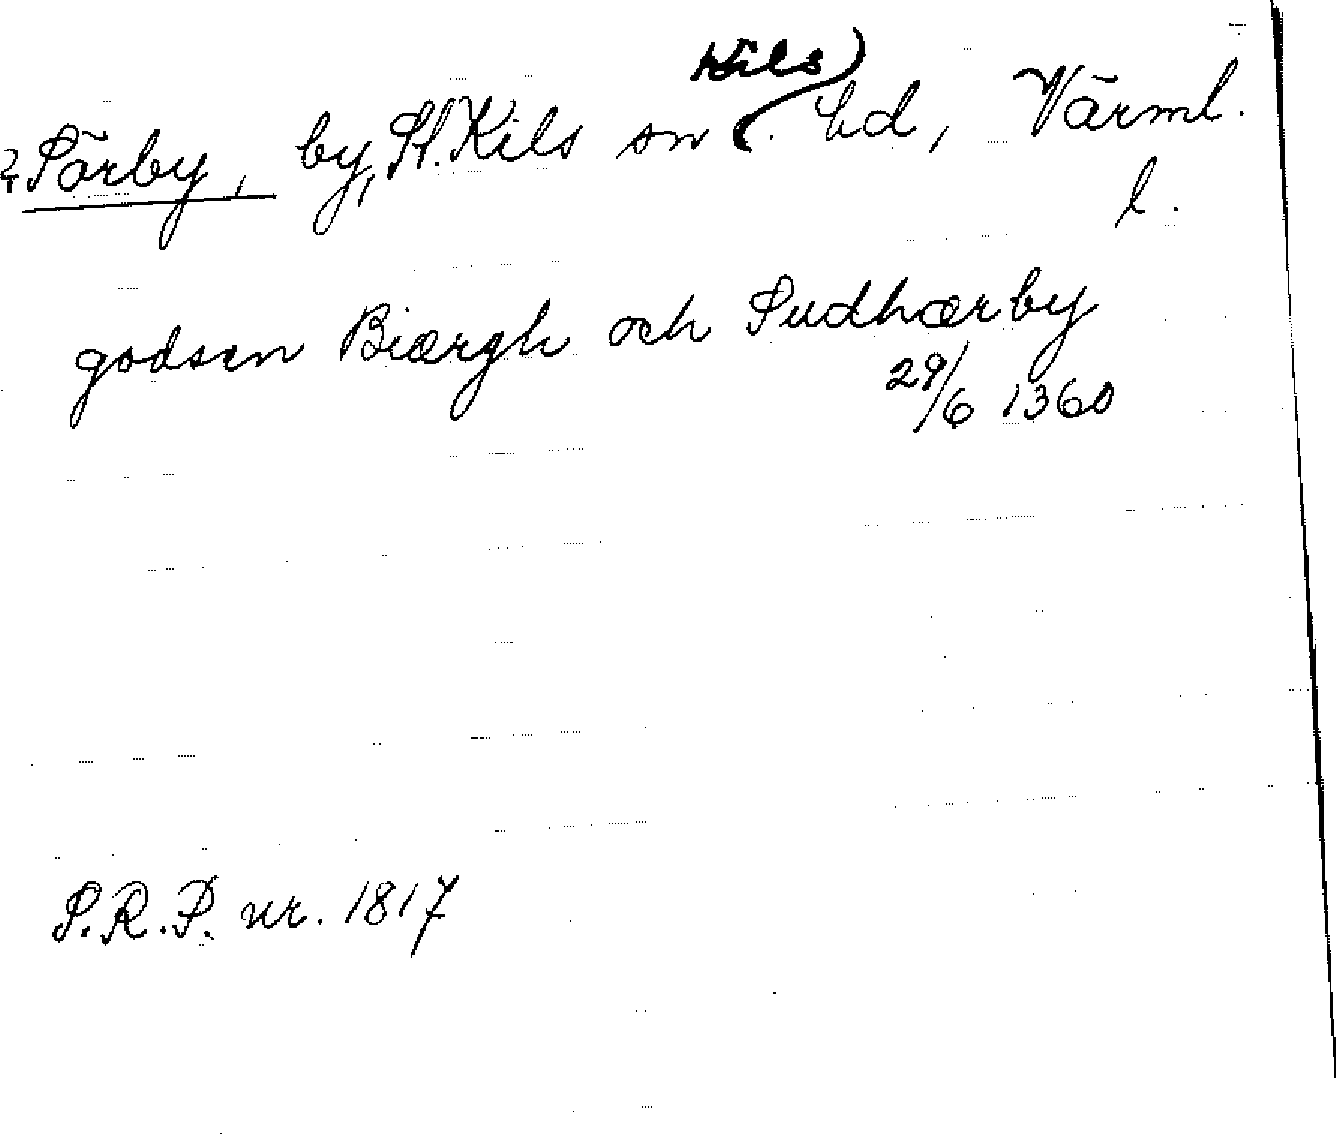 ? Sörby, by, St. Kils sn (Kils) hd, Värml.
l.
godsen Biærgh och Sudhærby
29/6 1360
S.R.P. nr. 1817